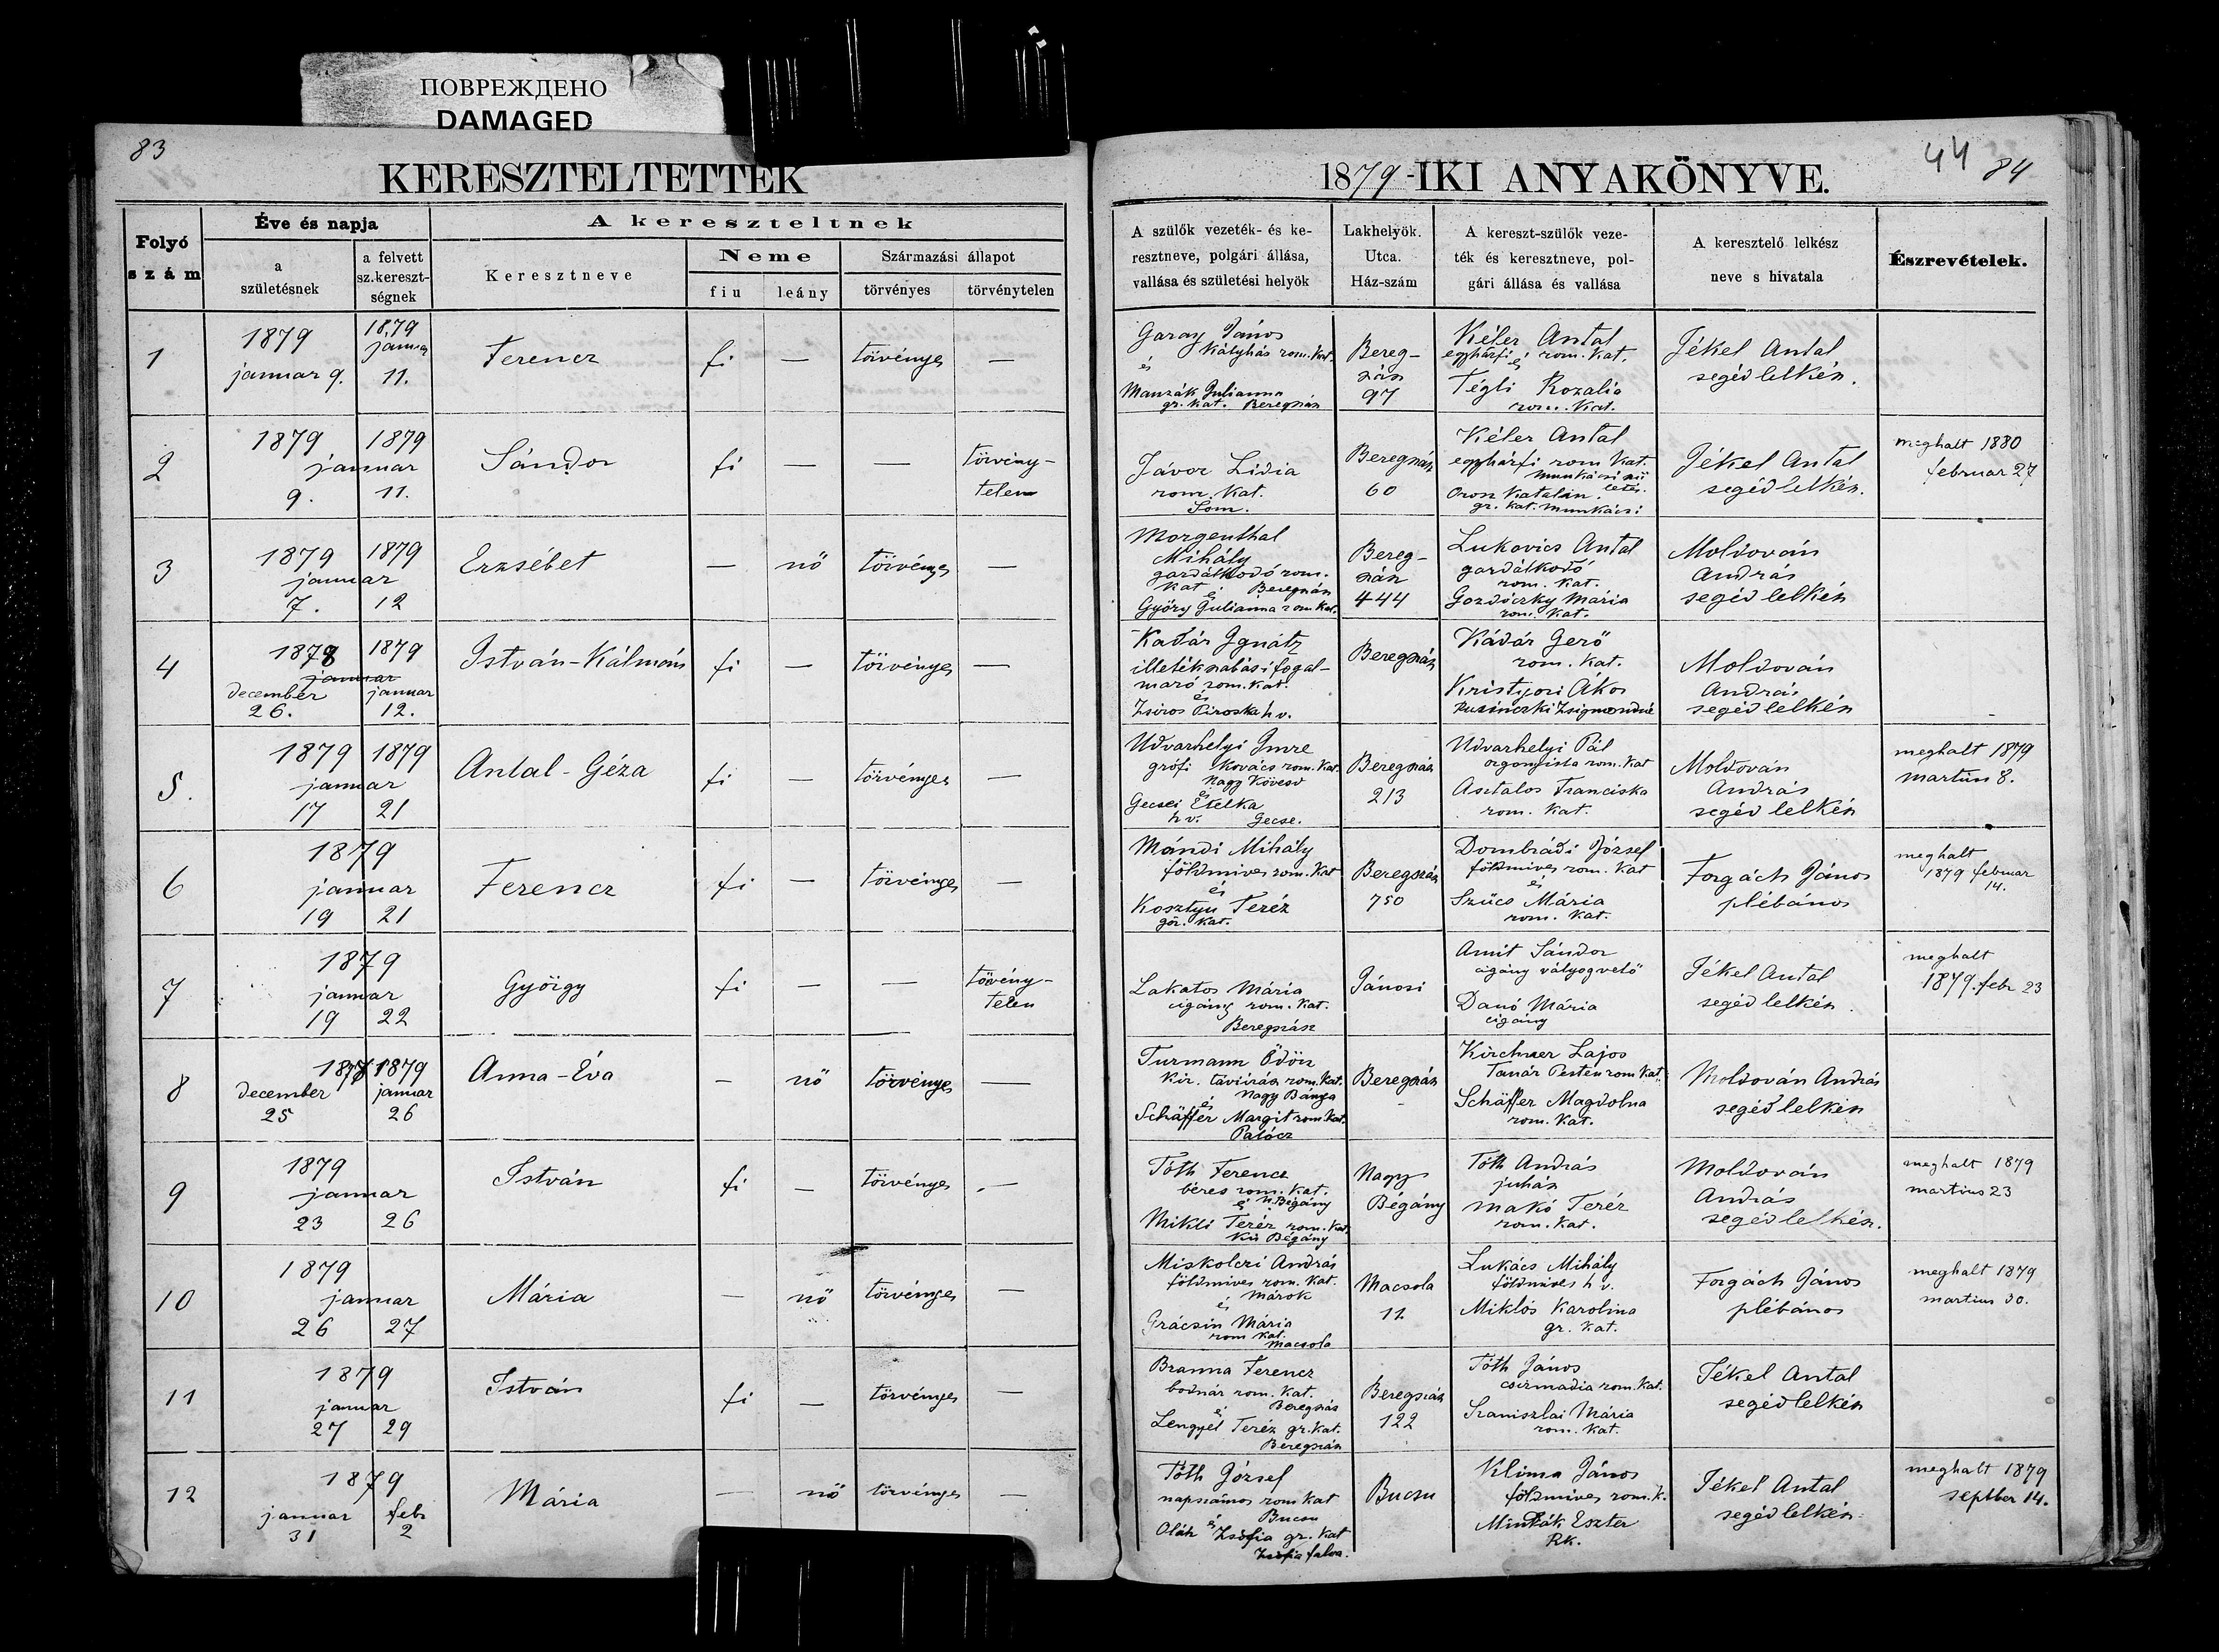 ПОВРЕЖДЕНО
DAMAGED
83
KERESZTELTETTEK
Folyó szám
Éve és napja
a születésnek
a felvett sz.kereszt-ségnek
A kereszteltnek
Keresztneve
Neme
fiu
leány
Származási állapot
törvényes
törvénytelen
1
1879
januar 9.
1879
januar
11.
Ferencz
fi
—
törvényes
—
2
1879 1879
januar
9. 11.
Sándor
fi
—
—
törvény-
telen
3
1879 1879
januar
7. 12
Erzsébet
—
nő
törvényes
—
4
1878 1879
januar
december januar
26. 12.
István-Kálmán
fi
—
törvényes
—
5.
1879 1879
januar
17 21
Antal-Géza
fi
—
törvényes
—
6
1879
januar
19 21
Ferencz
fi
—
törvényes
—
7
1879
januar
19 22
György
fi
—
—
törvény-
telen
8
1878 1879
december januar
25 26
Anna-Éva
—
nő
törvényes
—
9
1879
januar
23 26
István
fi
—
törvényes
—
10
1879
januar
26 27
Mária
—
nő
törvényes
—
11
1879
januar
27 29
István
fi
—
törvényes
—
12
1879
januar febr
31 2
Mária
—
nő
törvényes
—
44
84
1879-IKI ANYAKÖNYVE.
A szülők vezeték- és ke-
resztneve, polgári állása,
vallása és születési helyök
Lakhelyök.
Utca.
Ház-szám
A kereszt-szülők veze-
ték és keresztneve, pol-
gári állása és vallása
A keresztelő lelkész
neve s hivatala
Észrevételek.
Garay János
kályhás rom. kat.
és
Manzák Julianna
gr. kat. Beregszász
Bereg-
szász
97
Kéler Antal
egyházfi rom. kat.
és
Tégli Rozalia
rom. kat.
Jékel Antal
segéd lelkész.
Jávor Lidia
rom. kat.
Som.
Beregszász
60
Kéler Antal
egyházfi rom kat.
munkácsi szü
letés.
Orosz Katalin
gr. kat. munkácsi
Jékel Antal
segéd lelkész.
meghalt 1880
februar 27
Morgenthal
Mihály
gazdálkodó rom.
kat Beregszász
és
Győry Julianna rom kat.
Bereg-
szász
444
Lukovics Antal
gazdálkodó
rom. kat.
Gozdóczky Mária
rom. kat.
Moldován
András
segéd lelkész
Kádár Ignátz
illetékszabási fogal-
mazó rom. kat.
és
Zsiros Piroska h v.
Beregszász
Kádár Gerő
rom. kat.
Kristyori Ákos
Ruzinczki Zsigmondné
Moldován
András
segéd lelkész
Udvarhelyi Imre
grófi kovács rom. kat.
Nagy Kövesd
és
Gecsei Etelka
h v. Gecse.
Beregszász
213
Udvarhelyi Pál
organista rom. kat
Asztalos Franciska
rom. kat.
Moldován
András
segéd lelkész
meghalt 1879
martius 8.
Mándi Mihály
földmives rom. kat
és
Kosztyu Teréz
gör. kat.
Beregszász
750
Dombrádi József
földmives rom. kat
és
Szücs Mária
rom. kat.
Forgách János
plébános
meghalt
1879 februar
14.
Lakatos Mária
cigány rom. kat.
Beregszász
Jánosi
Amit Sándor
cigány vályogvető
Danó Mária
cigány
Jékel Antal
segéd lelkész.
meghalt
1879. febr 23
Turmann Ödön
kir. távirász rom. kat.
Nagy Bánya
és
Schäffer Margit rom. kat.
Palócz
Beregszász
Kirchner Lajos
Tanár Pesten rom kat.
Schäffer Magdolna
rom. kat.
Moldován András
segéd lelkész
Tóth Ferencz
béres rom. kat.
és N. Bégány
Mikli Teréz rom. kat.
Kis Bégány
Nagy
Bégány
Tóth András
juhász
Makó Teréz
rom. kat.
Moldován
András
segéd lelkész.
meghalt 1879
martius 23
Miskolczi András
földmives rom. kat.
és Márok
Grácsin Mária
rom kat.
Macsola
Macsola
11.
Lukács Mihály
földmives h v.
Miklós Karolina
gr. kat.
Forgách János
plébános
meghalt 1879
martius 30.
Branna Ferencz
bodnár rom. kat.
és Beregszász
Lengyel Teréz gr. kat.
Beregszász
Beregszász
122
Tóth János
csizmadia rom. kat.
Szaniszlai Mária
rom. kat.
Jékel Antal
segéd lelkész
Tóth József
napszámos rom kat
és Bucsu
Oláh Zsófia gr. kat
Zsófia falva.
Bucsu
Klima János
földmives rom. k.
Minkák Eszter
Rk.
Jékel Antal
segéd lelkész
meghalt 1879
septber 14.